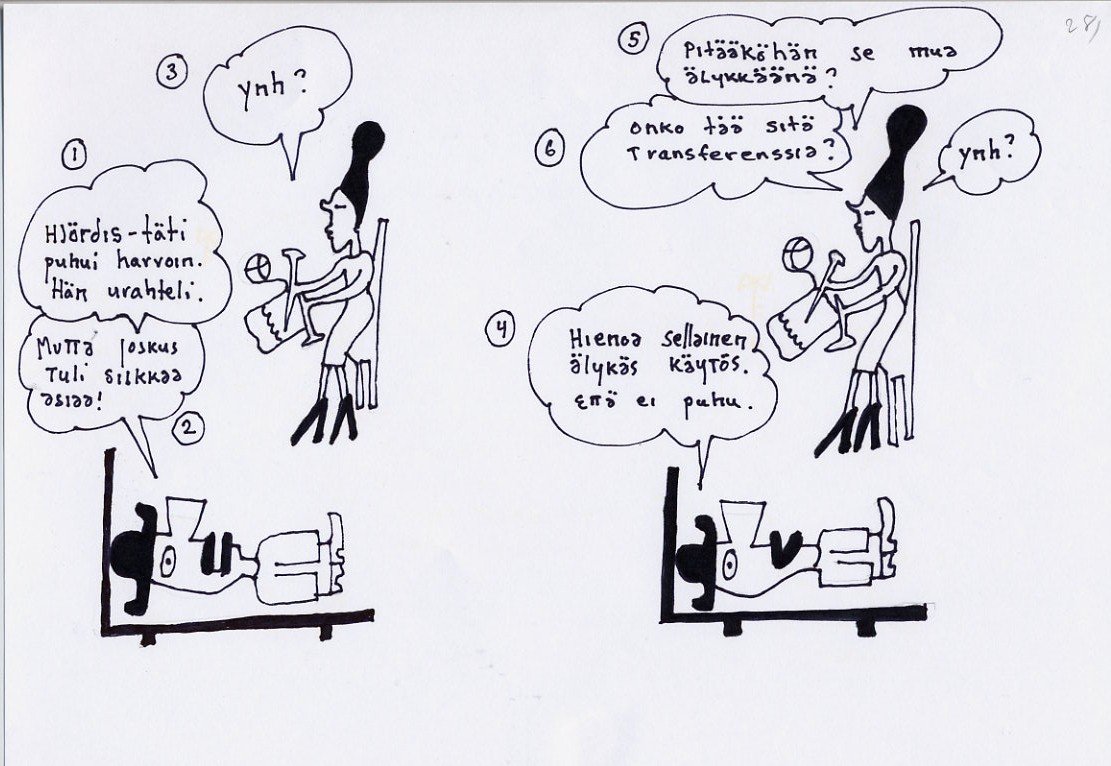 1
Hjördis-täti
puhui harvoin.
Hän urahteli.
Mutta joskus
tuli silkkaa
asiaa!
2
3
ynh?
4
Hienoa sellainen
älykäs käytös.
että ei puhu.
5
Pitääköhän se mua
älykkäänä?
6
onko tää sitä
Transferenssia?
ynh?
28)